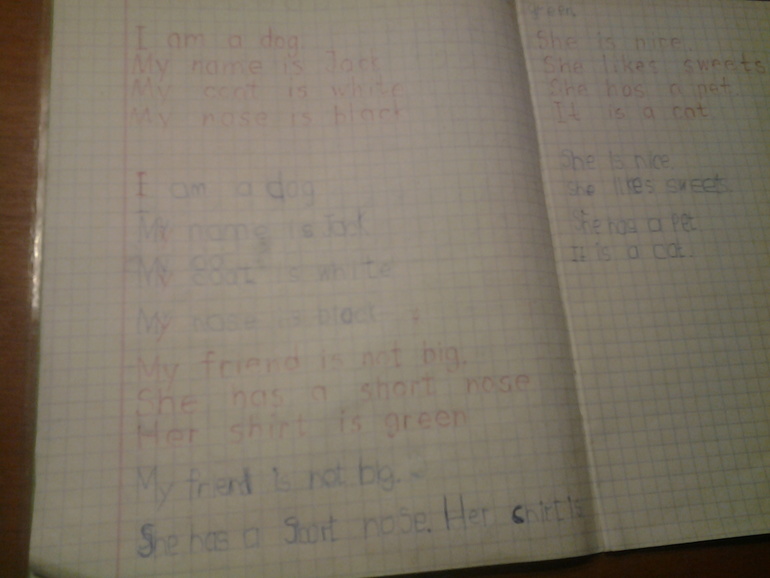 I am a dog.
My name is Jack
My coat is white
My nose is black
I am a dog
My name is Jack
My coat is white
My nose is black
My friend is not big.
She has a short nose
Her shirt is green
My friend is not big.
She has a Short nose. Her shirt is
green
She is nice.
She likes sweets
She has a pet.
It is a cat
She is nice.
She likes sweets.
She has a pet.
It is a cat.